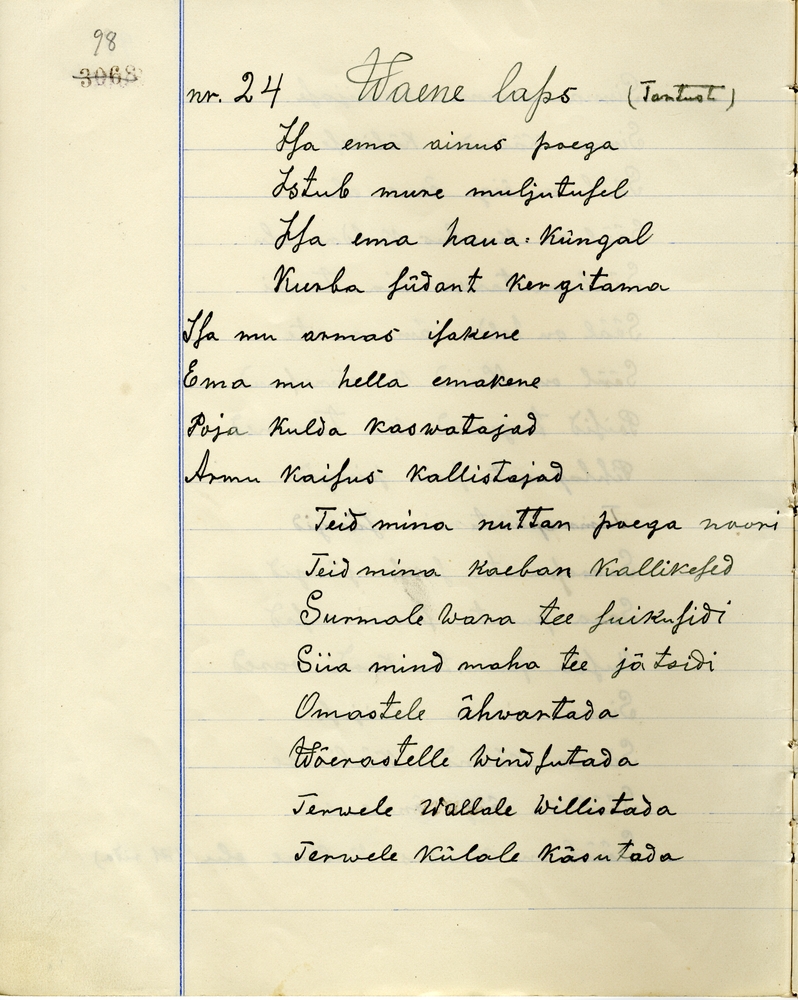 98
3068
nr. 24 Waene laps (Tartust)
Isa ema ainus poega
Istub mure muljutusel
Isa ema haua-küngal
Kurba südant kergitama
Isa mu armas isakene
Ema mu hella emakene
Poja kulda kaswatajad
Armu kaisus kallistajad
Teid mina nuttan poega noori
Teid mina kaeban kallikesed
Surmale wara tee suikusidi
Siia mind maha tee jätsidi
Omastele ähwartada
Wõerastelle windsutada
Terwele wallale willistada
Terwele külale käsutada